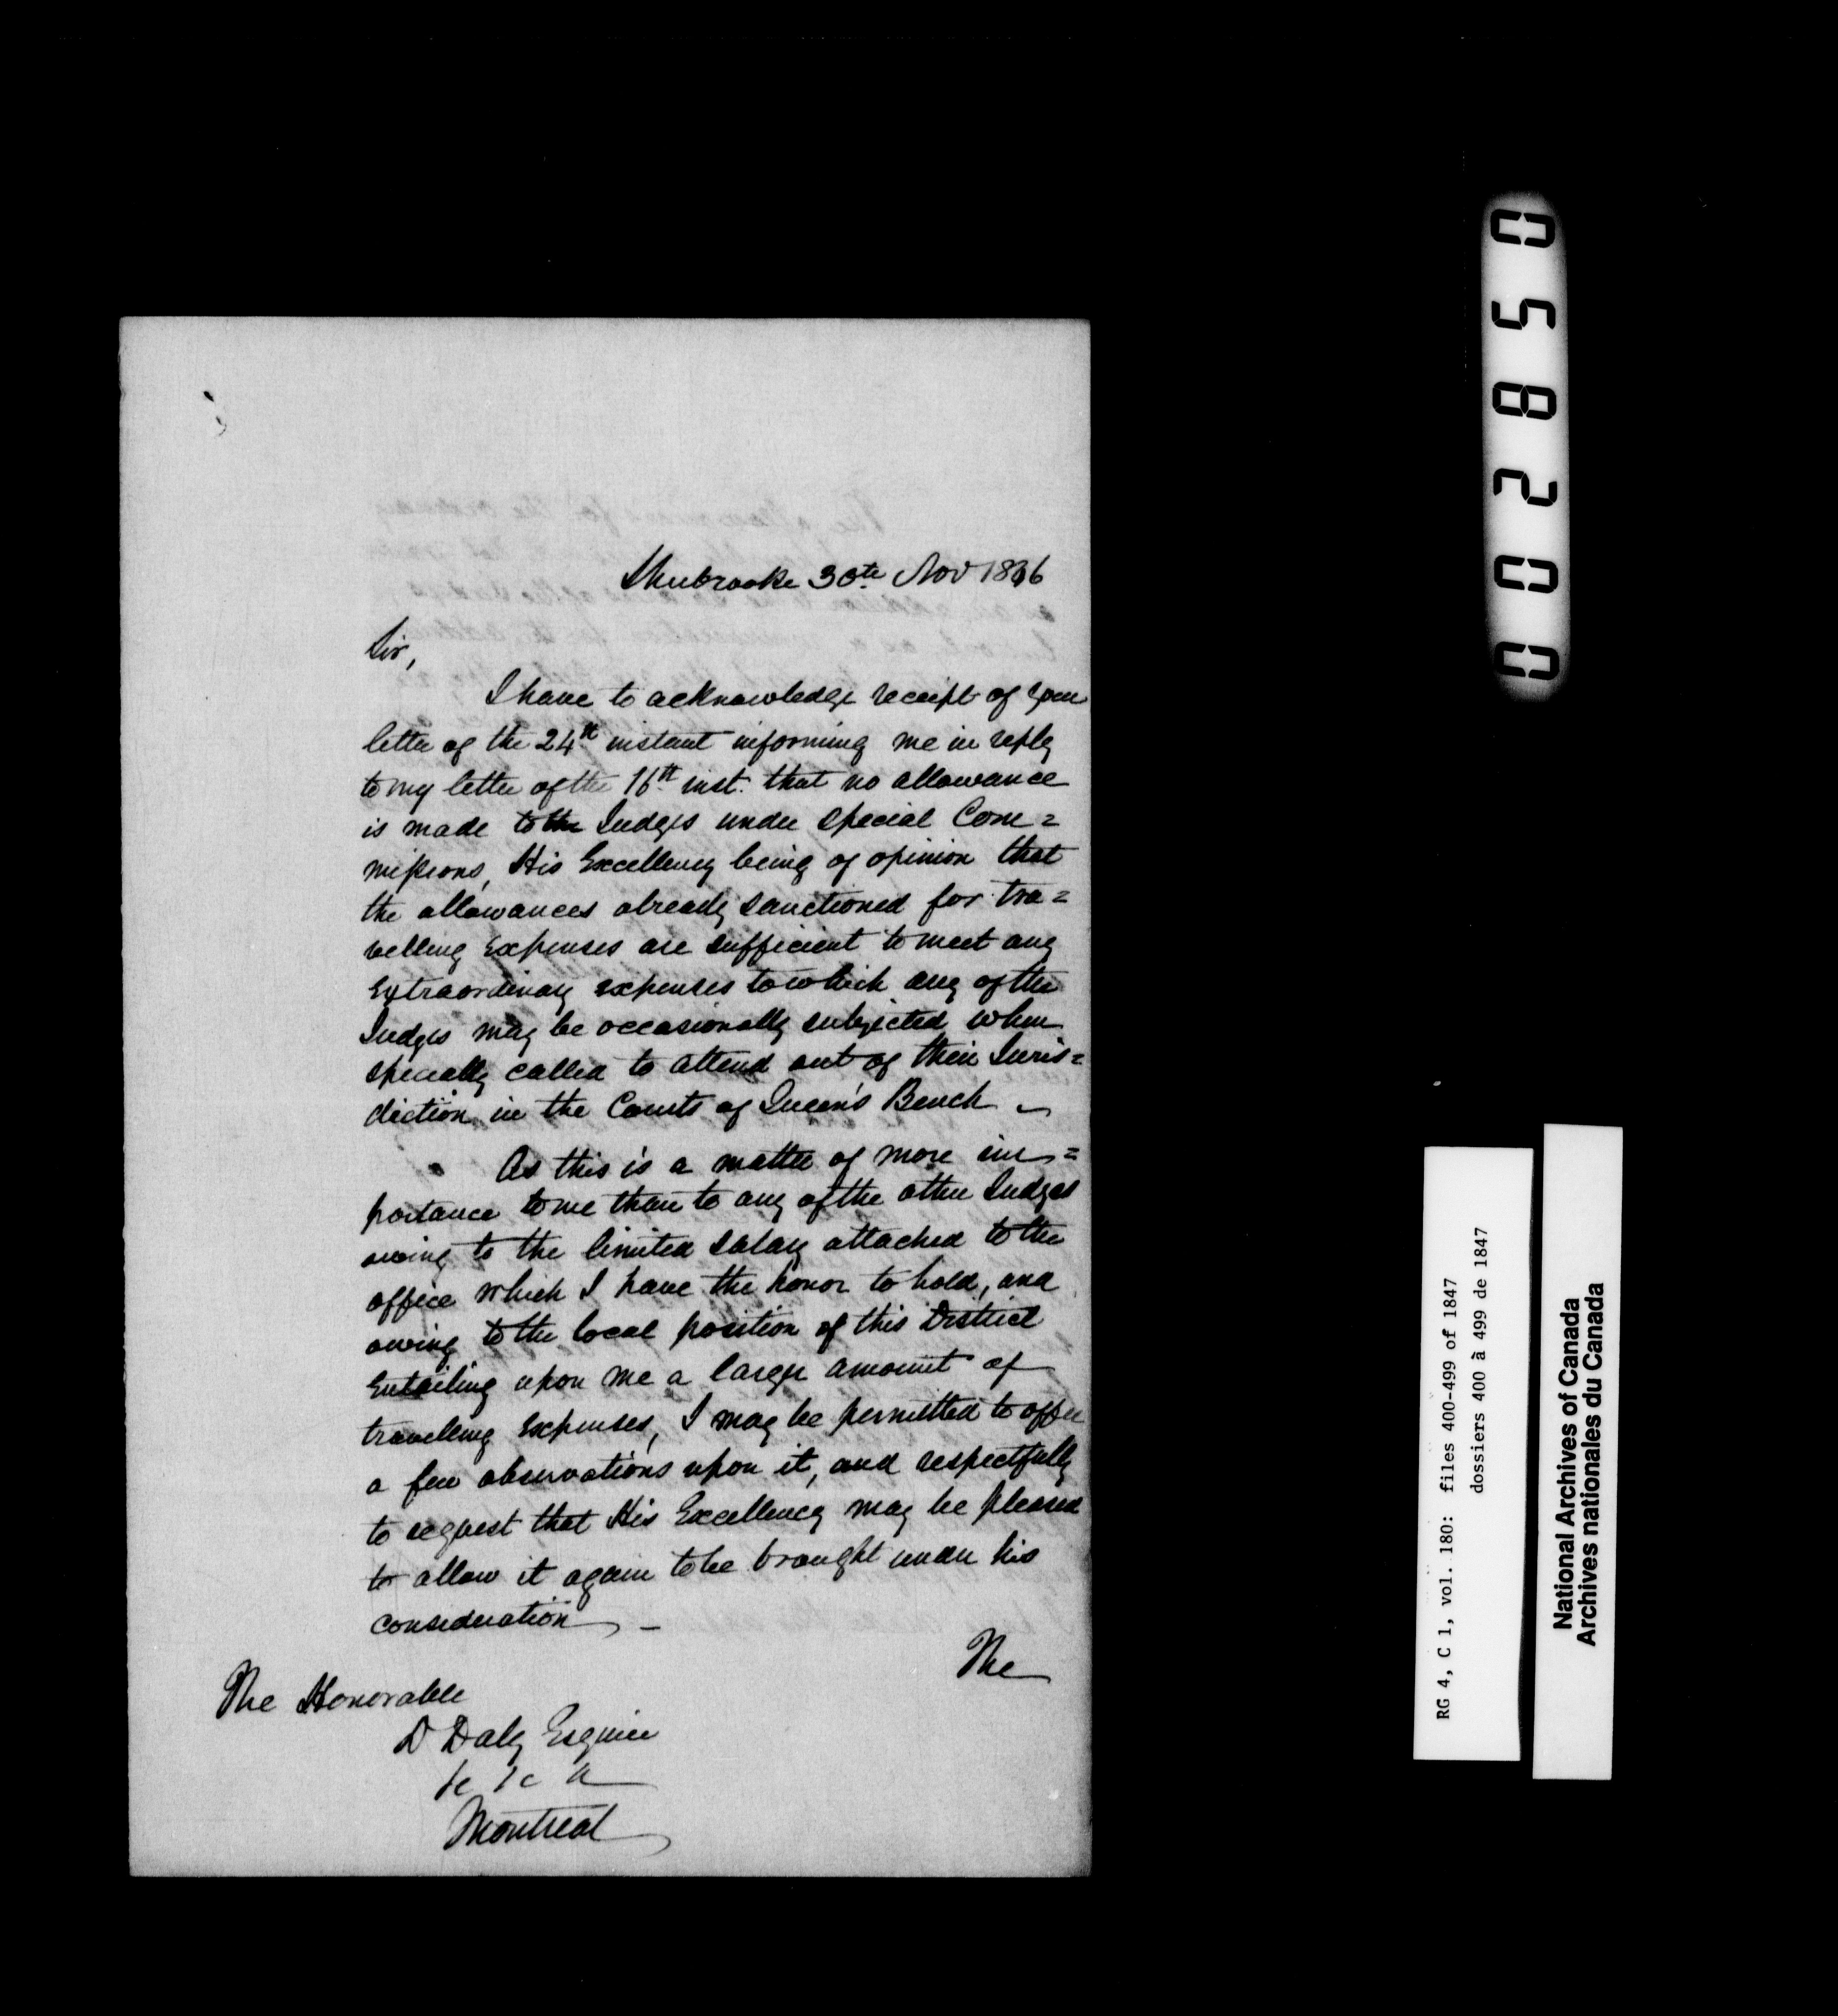 Sherbrooke 30th Nov 1846
Sir,
I have to acknowledge receipt of your
letter of the 24th instant informing me in reply
to my letter of the 16th inst. that no allowance
is made to the Judges under special Com=
missions, His Excellency being of opinion that
the allowances already sanctioned for tra=
velling Expenses are sufficient to meet any
Extraordinary expenses to which any of the
Judges may be occasionally subjected when
specially called to attend out of their Juris=
diction in the Courts of Queen's Bench -
As this is a matter of more im=
portance to me than to any of the other Judges
owing to the limited salary attached to the
office which I have the honor to hold, and
owing to the local position of this District
Entailing upon me a larger amount of
travelling Expenses, I may be permitted to offer
a few observations upon it, and respectfully
to request that His Excellency may be pleased
to allow it again to be brought under his
consideration -
The
The Honorable
D Daly Esquire
&c &c &c
Montreal
005850
RG 4, C 1, vol. 180: files 400-499 of 1847
dossiers 400 à 499 de 1847
National Archives of Canada
Archives nationales du Canada